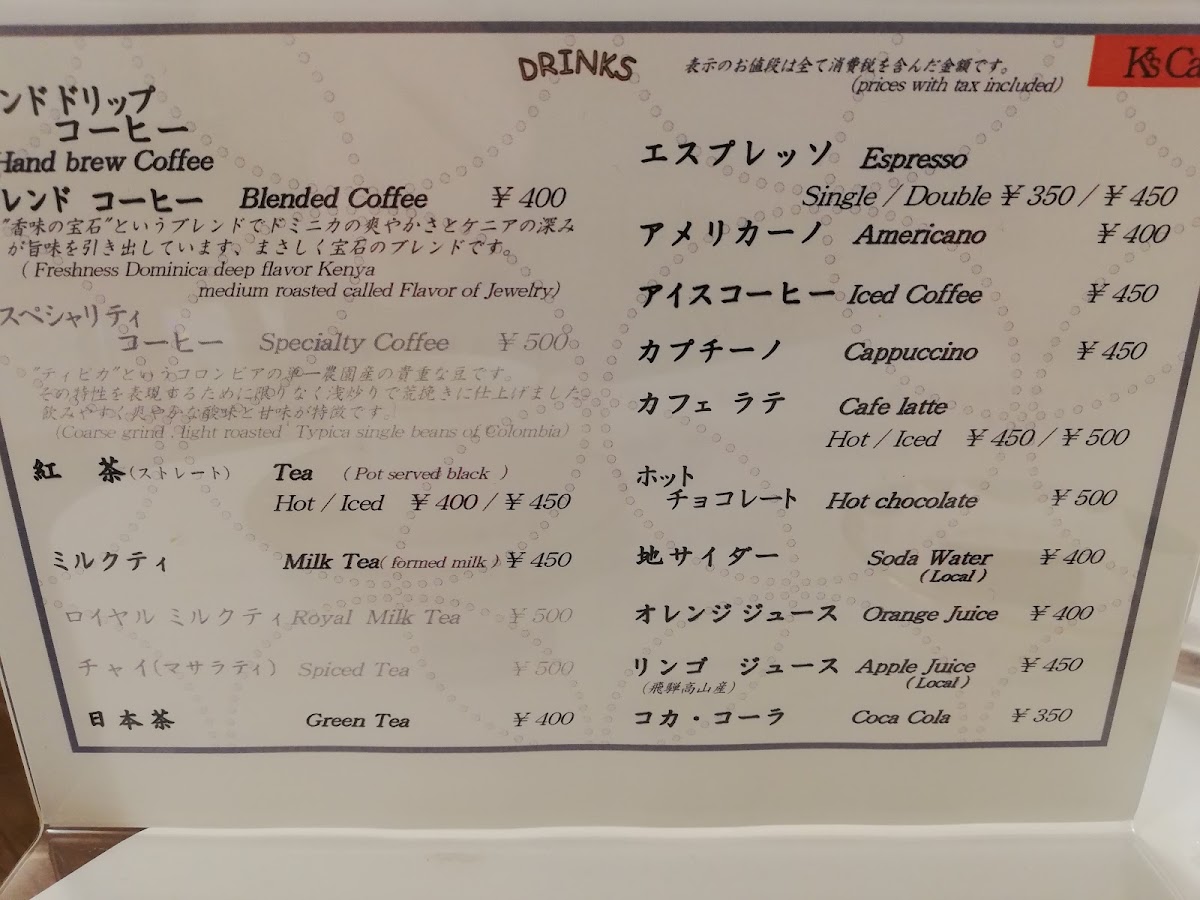 DRINKS
表示のお値段は全て消費税を含んだ金額です。
(prices with tax included)
K's Ca
ンド ドリップ
コーヒー
Hand brew Coffee
レンド コーヒー Blended Coffee ¥400
"香味の宝石"というブレンドでドミニカの爽やかさとケニアの深み
が旨味を引き出しています、まさしく宝石のブレンドです。
( Freshness Dominica deep flavor Kenya
medium roasted called Flavor of Jewelry)
スペシャリティ
コーヒー Specialty Coffee ¥500
"ティピカ"というコロンビアの単一農園産の貴重な豆です。
その特性を表現するために限りなく浅炒りで荒挽きに仕上げました。
飲みやすく爽やかな酸味と甘味が特徴です。
(Coarse grind , light roasted Typica single beans of Colombia)
紅 茶(ストレート) Tea ( Pot served black )
Hot / Iced ¥400 / ¥450
ミルクティ Milk Tea( formed milk ) ¥450
ロイヤル ミルクティ Royal Milk Tea ¥500
チャイ(マサラティ) Spiced Tea ¥500
日本茶 Green Tea ¥400
エスプレッソ Espresso
Single / Double ¥350 / ¥450
アメリカーノ Americano ¥400
アイスコーヒー Iced Coffee ¥450
カプチーノ Cappuccino ¥450
カフェ ラテ Cafe latte
Hot / Iced ¥450 / ¥500
ホット
チョコレート Hot chocolate ¥500
地サイダー Soda Water ¥400
(Local)
オレンジジュース Orange Juice ¥400
リンゴ ジュース Apple Juice ¥450
(飛騨高山産) (Local)
コカ・コーラ Coca Cola ¥350